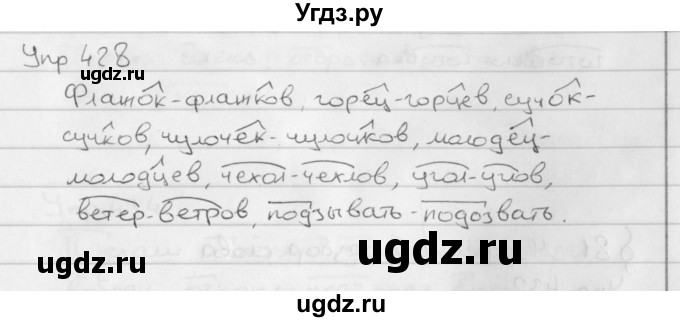 Угдз.ру
Упр 428
ugdz.ru
ugdz.ru
Флажок-флажков, горец-горцев, сучок-
сучков, чулочек-чулочков, молодец-
молодцев, чехол-чехлов, угол-углов,
ветер-ветров, подзывать-подозвать.
ugdz.ru
ugdz.ru
ugdz.ru